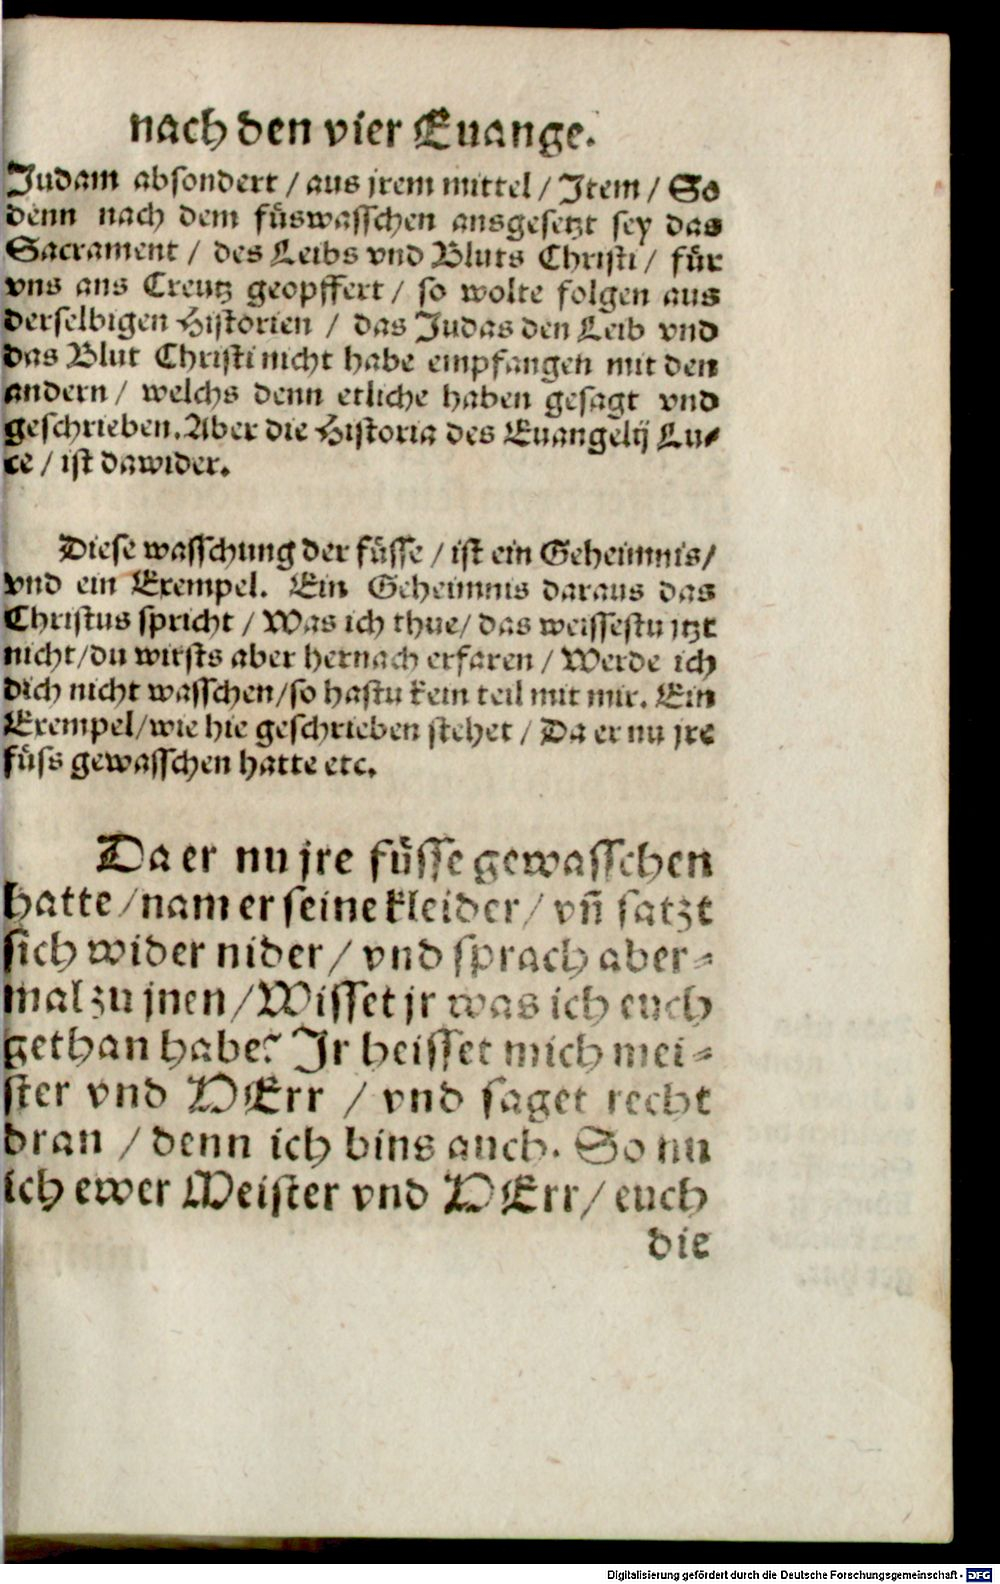 nach den vier Euange.
Judam absondert / aus jrem mittel / Item / So
denn nach dem füswasschen ausgesetzt sey das
Sacrament / des Leibs vnd Bluts Christi / für
vns ans Creutz geopffert / so wolte folgen aus
derselbigen Historien / das Judas den Leib vnd
das Blut Christi nicht habe empfangen mit den
andern / welchs denn etliche haben gesagt vnd
geschrieben. Aber die Historia des Euangelij Lu-
ce / ist dawider.
Diese wasschung der füsse / ist ein Geheimnis /
vnd ein Exempel. Ein Geheimnis daraus das
Christus spricht / Was ich thue / das weissestu jtzt
nicht / du wirsts aber hernach erfaren / Werde ich
dich nicht wasschen / so hastu kein teil mit mir. Ein
Exempel / wie hie geschrieben stehet / Da er nu jre
füss gewasschen hatte etc.
Da er nu jre füsse gewasschen
hatte / nam er seine kleider / vñ satzt
sich wider nider / vnd sprach aber-
mal zu jnen / Wisset jr was ich euch
gethan habe? Ir heisset mich mei-
ster vnd HErr / vnd saget recht
dran / denn ich bins auch. So nu
ich ewer Meister vnd HErr / euch
die
Digitalisierung gefördert durch die Deutsche Forschungsgemeinschaft - DFG